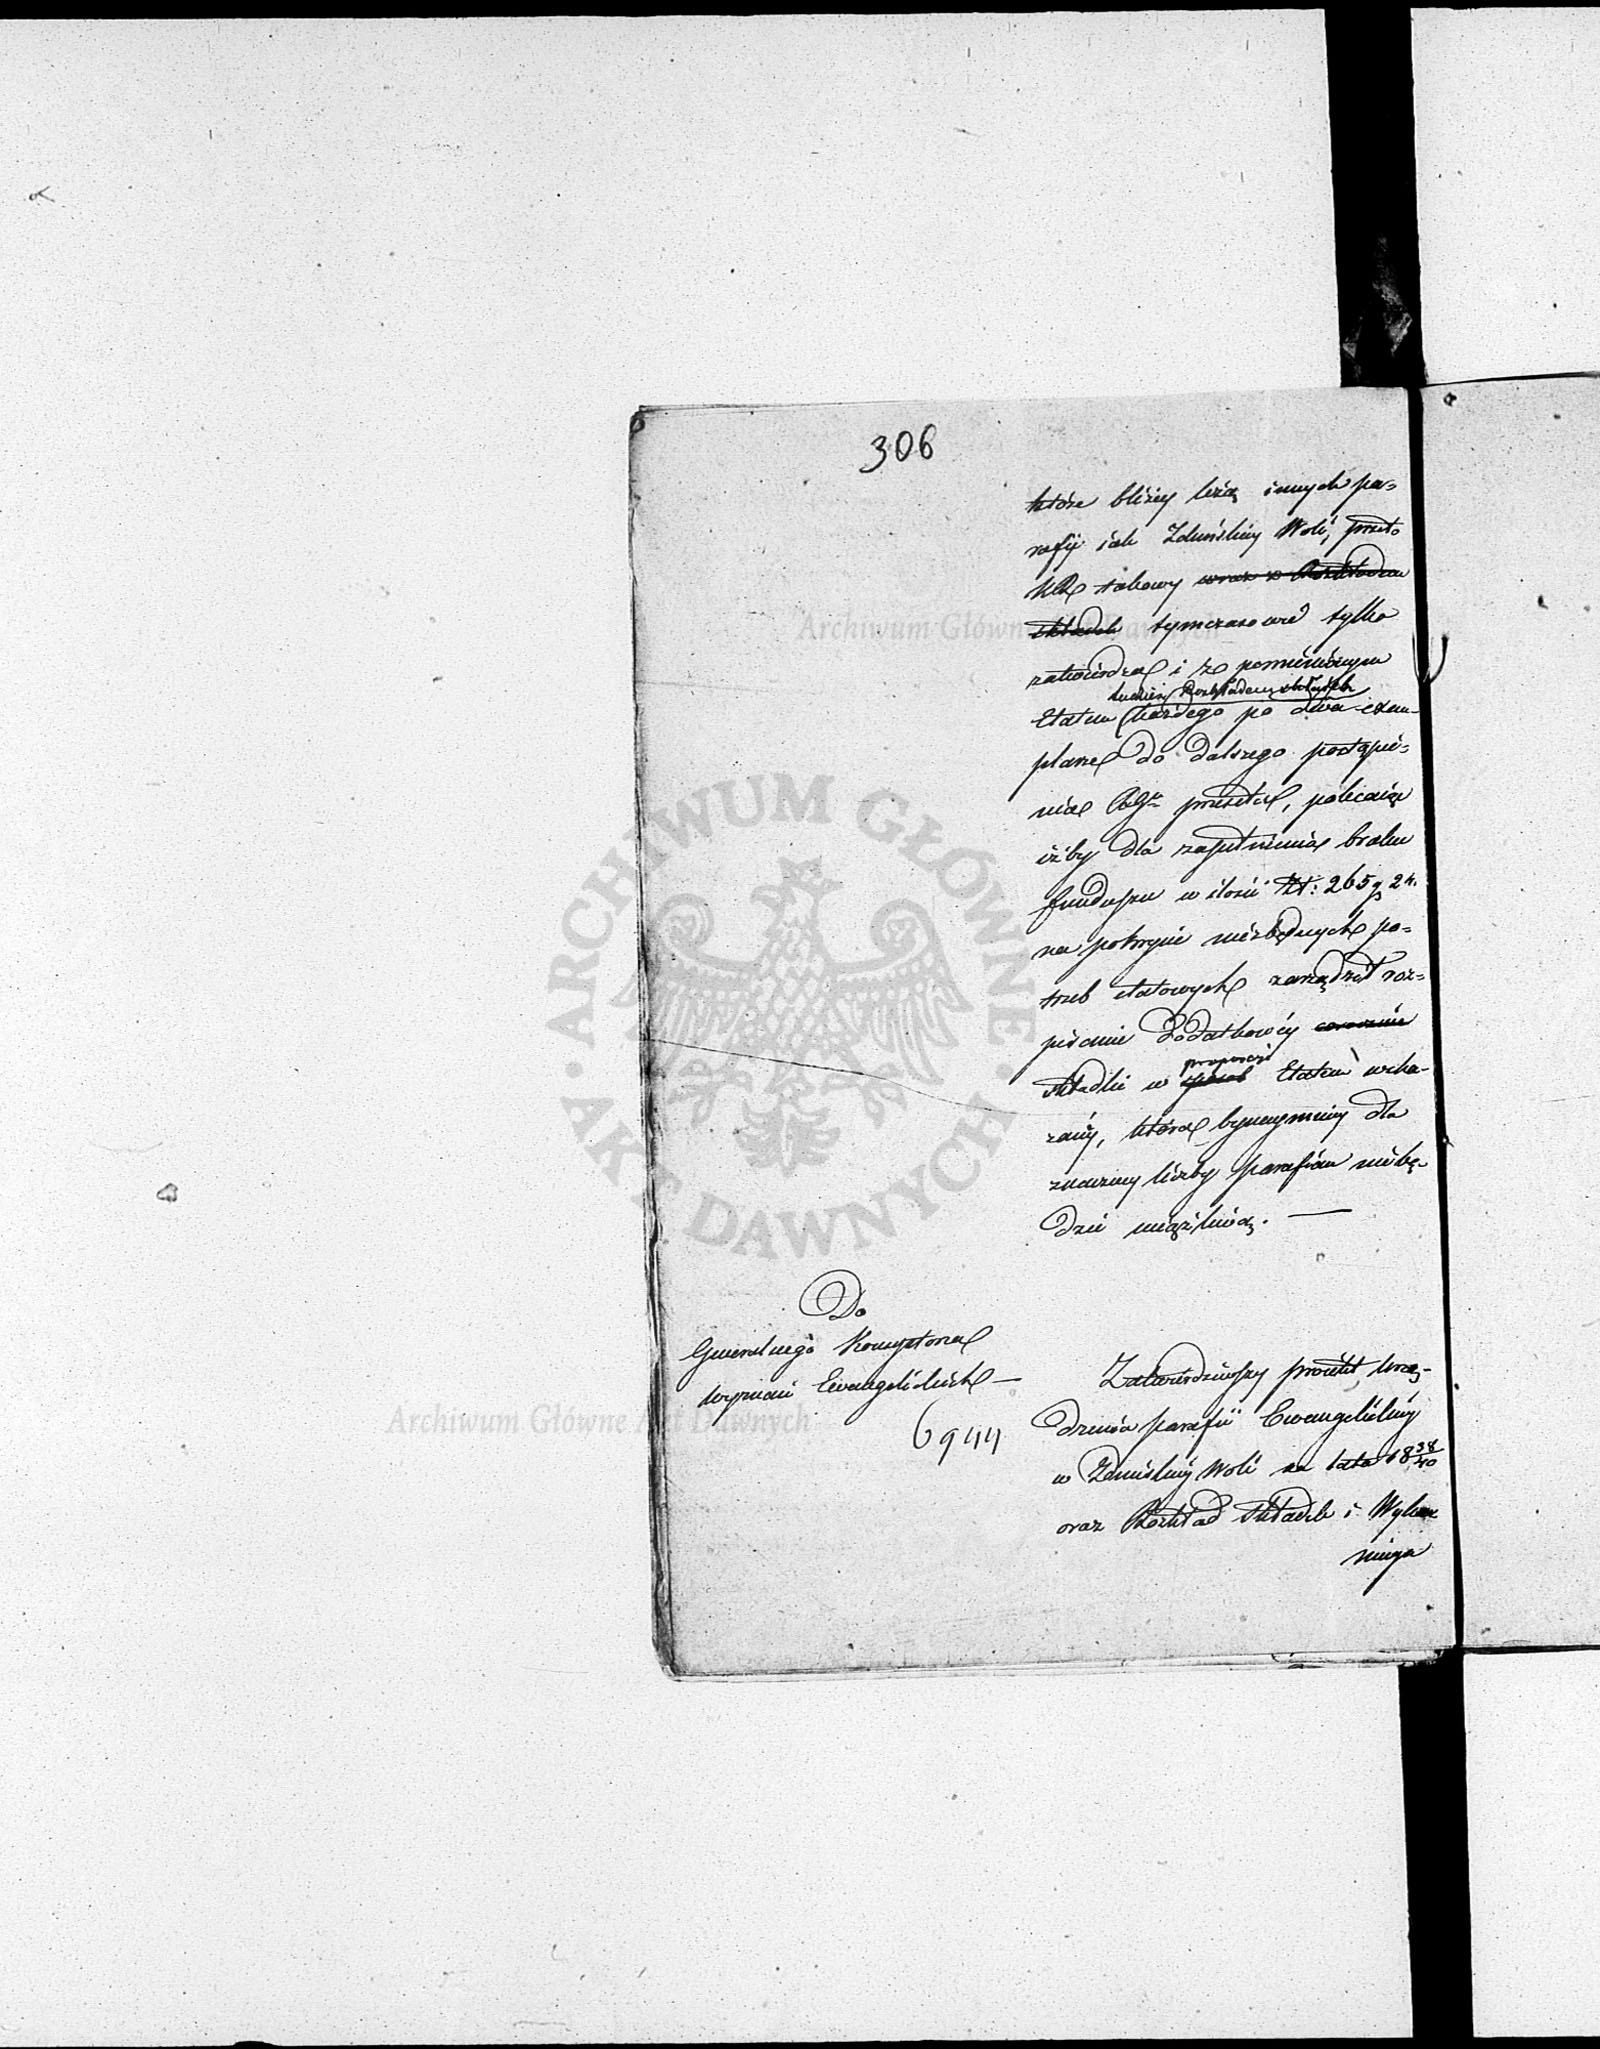 306
które bliżey leżą innych pa-
rafij iak Zduńskiey Woli, przeto
KR takowy wraz z Rozkładem
składek tymczasowo tylko
zatwierdza i z pomienionym
tudzież Rozkładem składek
Etatem każdego po dwa exem-
plarze do dalszego postąpie-
nia przesyła, polecaiąc
iżby dla zapełnienia braku
funduszu w ilości Zł: 265 g 24.
na pokrycie niezbędnych po-
trzeb etatowych zarządził roz-
pisanie Dodatkowéy corocznie
składki w sposób Etatem wska-
proporcyi
zany, która bynaymniey dla
znaczney liczby parafian niebę-
dzie uciążliwą. —
Do
Generalnego Konsystorza
Wyznań Ewangelickich —
6944
Zatwierdziwszy proiekt urzą-
dzenia parafii Ewangelickiéy
w Zduńskiéy Woli na lata 18 38/40
oraz Rozkład składek i Wyka
Archiwum Główne Akt Dawnych
Archiwum Główne Akt Dawnych
ARCHIWUM GŁÓWNE · AKT DAWNYCH ·